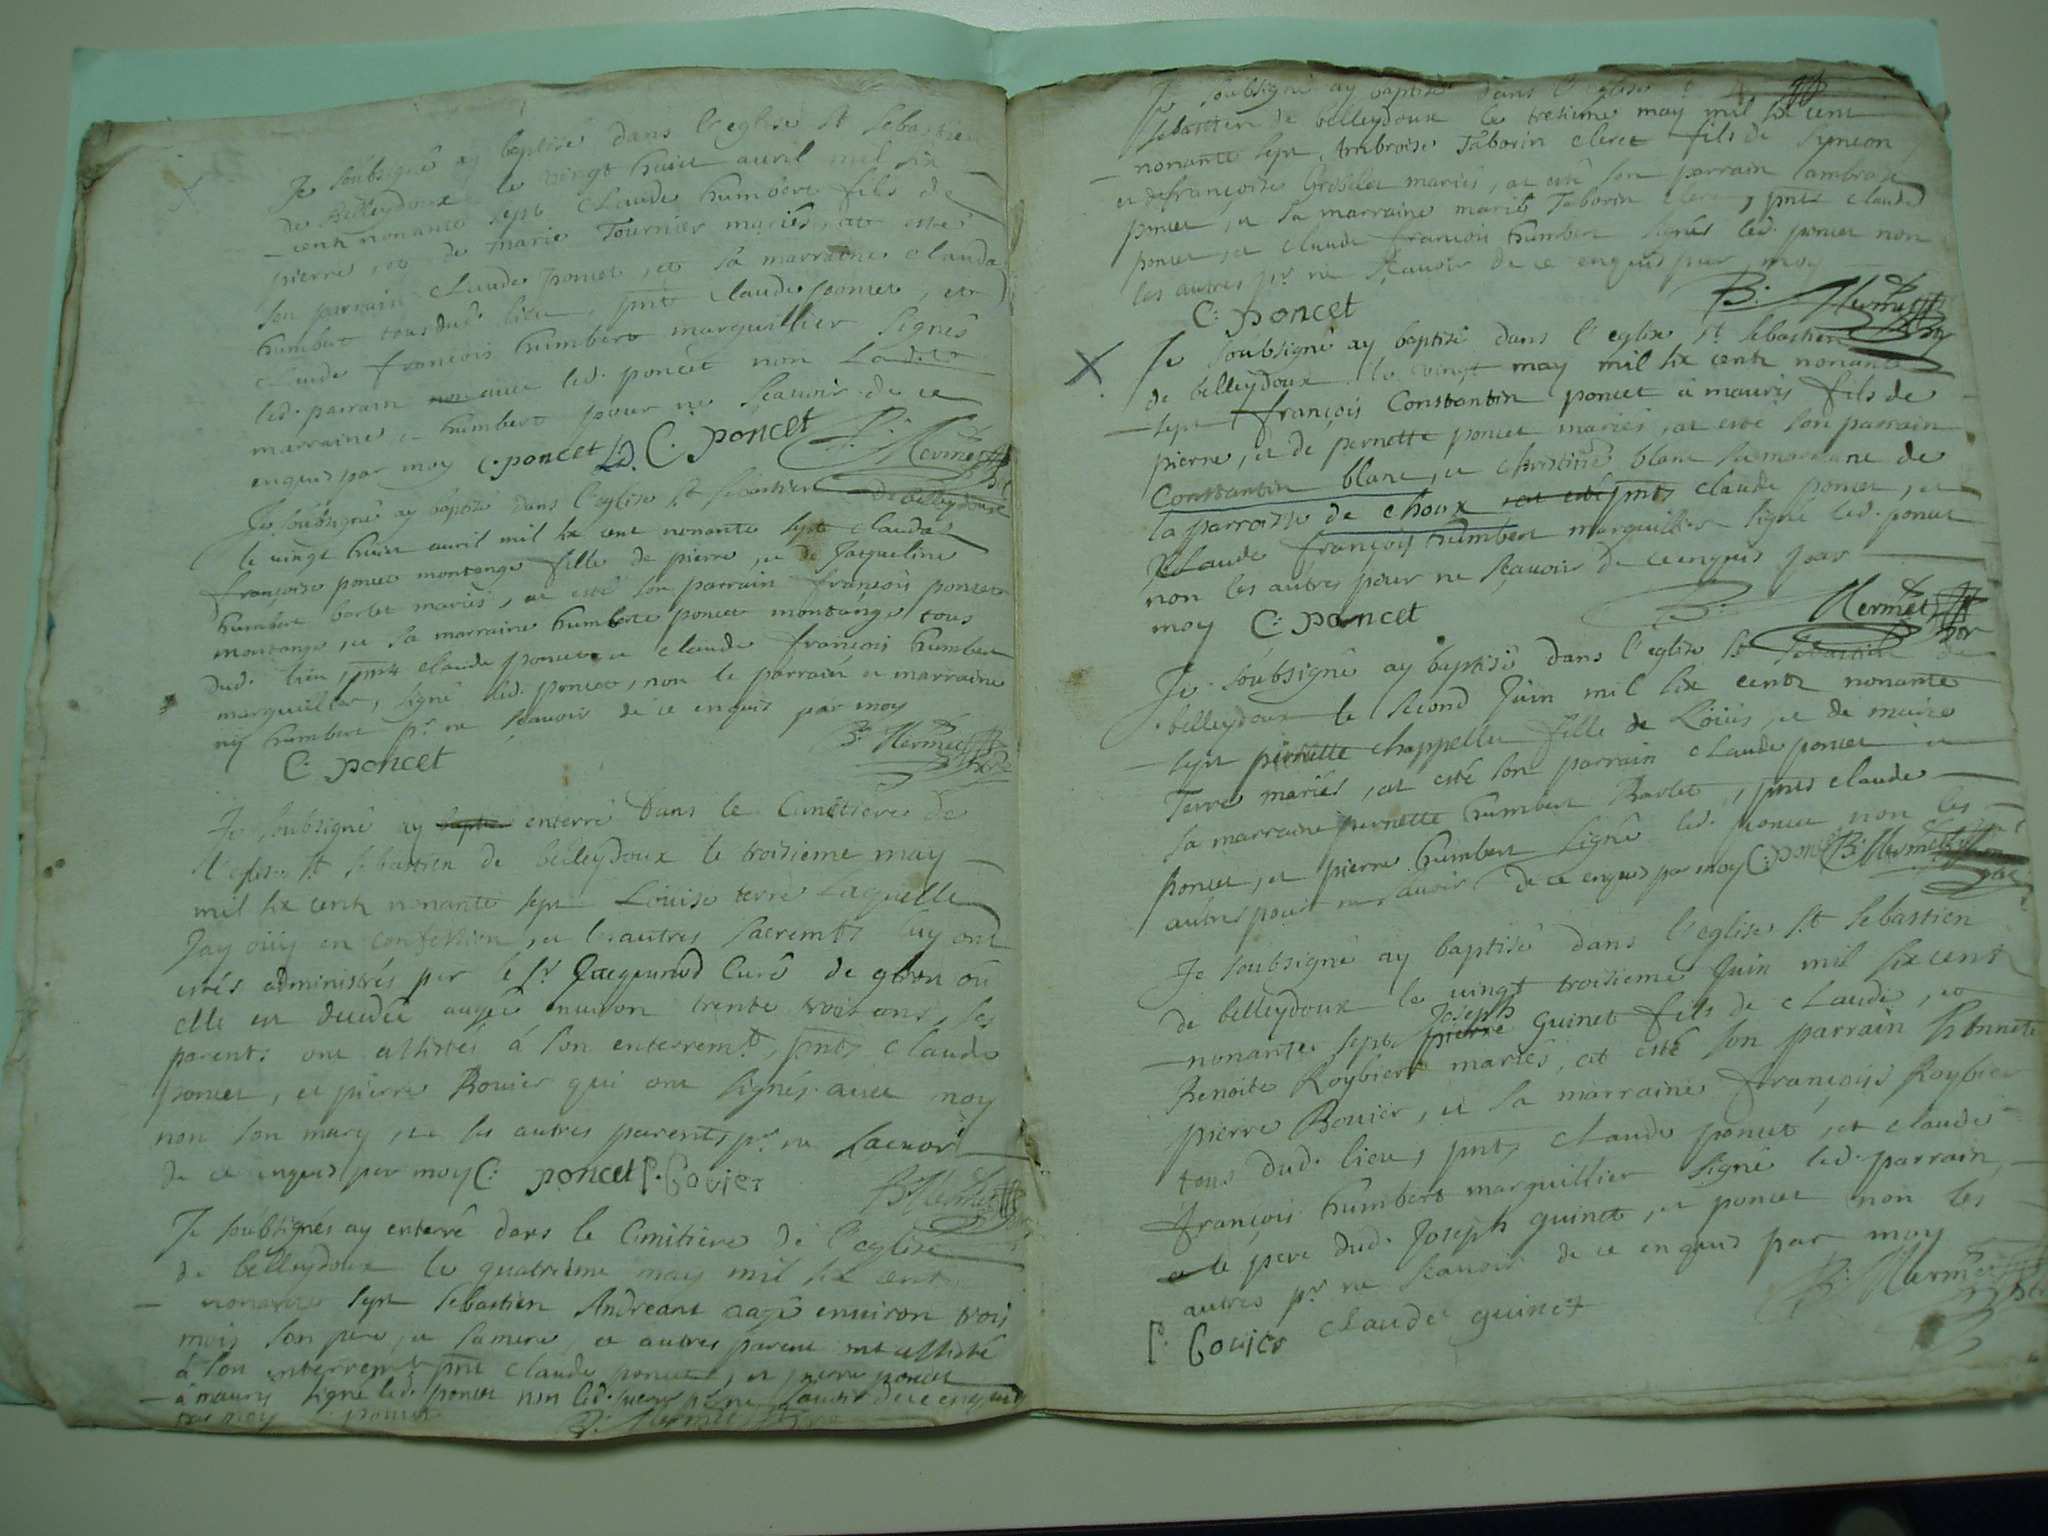 Je soubsigné ay baptisé dans l'eglise st sebastien
de Belleydoux le vingt huict auril mil six
cent nonante sept Claude humbert fils de
pierre, et de marie Tournier mariés, at esté
son parrain Claude poncet, et sa marraine Clauda
humbert tous dud. lieu, pnts Claude poncet, et
Claude françois humbert marguillier signés
led. parrain non auec led. poncet non Ladite
marraine humbert pour ne sçauoir de ce
enquis par moy C. poncet C. poncet B. Hermet
Je soubsigné ay baptisé dans l'eglise st sebastien de belleydoux
le vingt huict auril mil six cent nonante sept clauda
françoise poncet montange fille de pierre, et de Jacqueline
humbert barlet mariés, at esté son parrain françois poncet
montange, et sa marraine humberte poncet montange, tous
dud. lieu, pnts claude poncet et claude françois humbert
marguillier, signé led. poncet, non le parrain et marraine
ny humbert pr. ne sçauoir de ce enquis par moy
C. poncet B. Hermet
Je soubsigné ay baptisé enterré dans le Cimetiere de
l'eglise st sebastien de belleydoux le troisieme may
mil six cent nonante sept Louise terre Laquelle
Jay oüy en confession, et les autres sacremts luy ont
estés administrés par le sr. Curé de où
elle est decedée aagée enuiron trente trois ans, ses
parents ont assistés à son enterremt, pnts claude
poncet, et pierre Bouier qui ont signés auec moy
non son mary, ne les autres parents pr. ne scauoir
de ce enquis par moy C. poncet P. Bouier B. Hermet
Je soubsignés ay enterré dans le Cimitiere de l'eglise
de belleydoux le quatrieme may mil six cent
nonante sept sebastien Andreant aagé enuiron trois
mois son pere, et sa mere, et autres parent ont assisté
à son enterremt pnt claude poncet, et pierre poncet
à maury signé led. poncet non led. pr ne scauoir de ce enquis
par moy poncet B. Hermet
Je soubsigné ay baptisé dans l'eglise st
sebastien de belleydoux le tresieme may mil six cent
nonante sept Ambroise Taborin clerct fils de symeon
et de françoise Grobelet mariés, at esté son parrain Lambrose
poncet, et sa marraine marie Taborin clerc, pnts claude
poncet, et claude françois humbert signés led. poncet non
les autres pr. ne sçauoir de ce enquis par moy
C. poncet B. Hermet
Je soubsigné ay baptisé dans l'eglise st sebastien
de belleydoux le vingt may mil six cent nonante
sept françois Constantin poncet à mauris fils de
pierre, et de pernette poncet mariés, at esté son parrain
Constantin blanc, et christine blanc sa marraine de
la parroisse de choux at esté pnts claude poncet, et
Claude françois humbert marguillier signé led. poncet
non les autres pour ne sçauoir de ce enquis par
moy C. poncet B. Hermet
Je soubsigné ay baptisé dans l'eglise st sebastien de
belleydoux le second Juin mil six cent nonante
sept pernette chappellu fille de Loüis, et de
Terre mariés, at esté son parrain claude poncet et
sa marraine pernette humbert Barlet, pnts claude
poncet, et pierre humbert signé led. poncet non les
autres pour ne sçauoir de ce enquis par moy C. poncet B. Hermet
Je soubsigné ay baptisé dans l'eglise st sebastien
de belleydoux le vingt troisieme Juin mil six cent
nonante sept pierre Joseph Guinet fils de claude, et
Benoite Roybier mariés, at esté son parrain honneste
pierre Bouier, et sa marraine françoise Roybier
tous dud. lieu, pnts claude poncet, et claude
françois humbert marguillier signé led. parrain,
et le pere dud. Joseph guinet, et poncet non les
autres pr. ne scauoir de ce enquis par moy
P. Bouier claude guinet B. Hermet